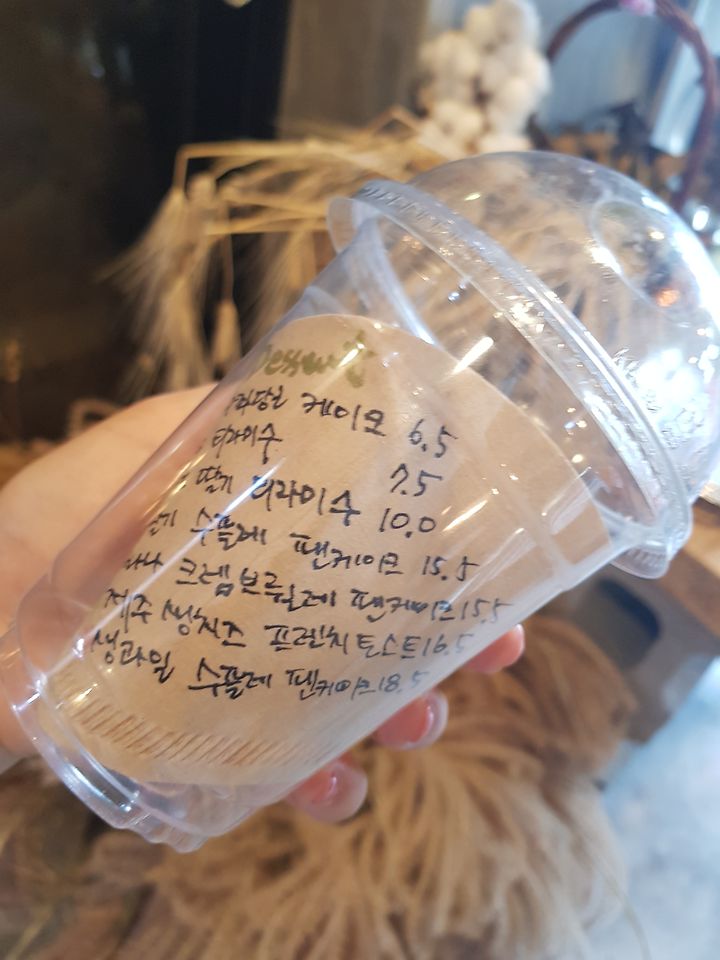 Dessert
케이크 6.5
티라미수 7.5
딸기 티라미수 10.0
수플레 팬케이크 15.5
크렘브륄레 팬케이크 15.5
제주 생치즈 프렌치토스트 16.5
생과일 수플레 팬케이크 18.5